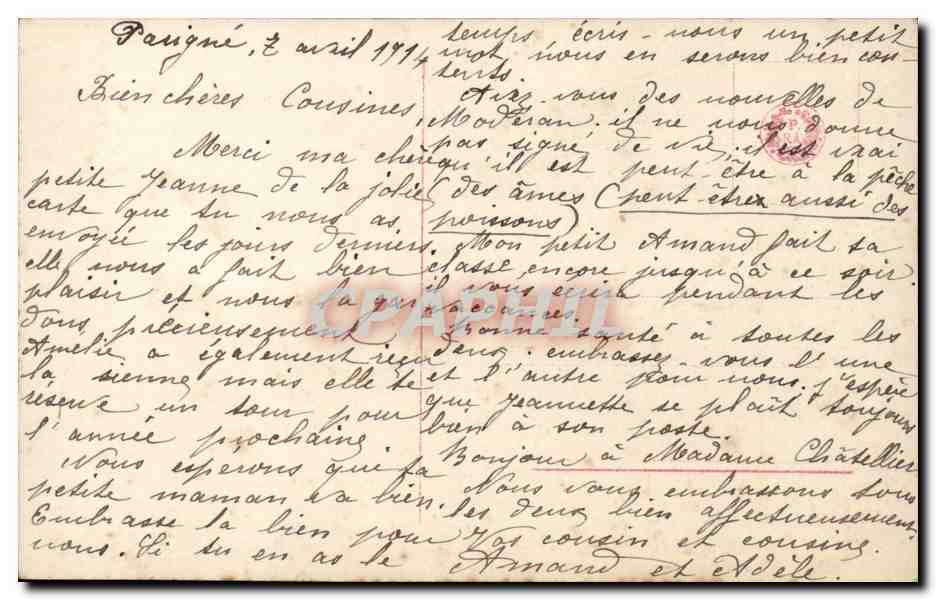 Parigné, 7 avril 1914
Bien chères Cousines,
Merci ma chère
petite Jeanne de la jolie
carte que tu nous as
envoyée les jours derniers.
elle nous a fait bien
plaisir et nous la gar
dons précieusement
Amélie a également reçu
la sienne mais elle te
réserve un tour pour
l'année prochaine.
Nous espérons que ta
petite maman va bien.
Embrasse la bien pour
nous. Si tu en as le
temps écris-nous un petit
mot, nous en serons bien con-
tents.
Avez-vous des nouvelles de
Modéran. il ne nous donne
pas signe de vie, il est vrai
qu'il est peut-être à la pêche
(des âmes (peut-être aussi des
poissons)
Mon petit Amand fait sa
classe encore jusqu'à ce soir.
il vous écrira pendant les
vacances.
Bonne santé à toutes les
deux. embrassez-vous l'une
et l'autre pour nous. j'espère
que Jeannette se plaît toujours
bien à son poste.
Bonjour à Madame Châtellier
Nous vous embrassons tous
les deux bien affectueusement.
Vos cousin et cousine.
Amand et Adèle.
CPAPHIL